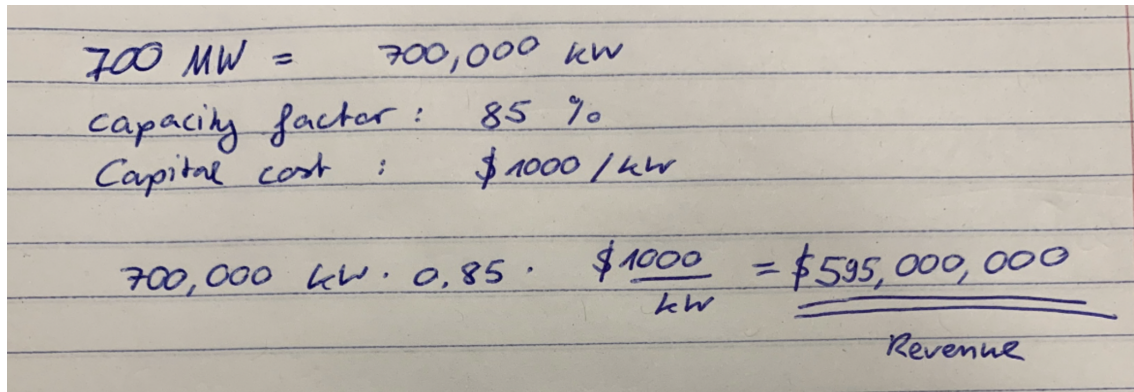 700 MW = 700,000 kW
capacity factor : 85 %
Capital cost : $1000/kW
700,000 kW · 0.85 · $1000/kW = $595,000,000
Revenue